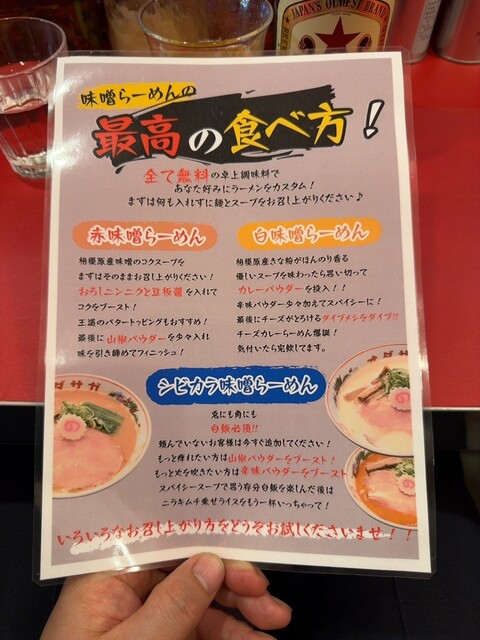 JAPAN'S OLDEST BRAND
味噌らーめんの
最高の食べ方!
全て無料の卓上調味料で
あなた好みにラーメンをカスタム!
まずは何も入れずに麺とスープをお召し上がりください♪
赤味噌らーめん
相模原産味噌のコクスープを
まずはそのままお召し上がりください!
おろしニンニクと豆板醤を入れて
コクをブースト!
王道のバタートッピングもおすすめ!
最後に山椒パウダーを少々入れ
味を引き締めてフィニッシュ!
白味噌らーめん
相模原産きな粉がほんのり香る
優しいスープを味わったら思い切って
カレーパウダーを投入!!
辛味パウダー少々加えてスパイシーに!
最後にチーズがとろけるダイブメシをダイブ!!
チーズカレーらーめん爆誕!
気付いたら完飲してます。
シビカラ味噌らーめん
兎にも角にも
白飯必須!!
頼んでいないお客様は今すぐ追加してください!
もっと痺れたい方は山椒パウダーをブースト!
もっと火を吹きたい方は辛味パウダーをブースト
スパイシースープで思う存分白飯を楽しんだ後は
ニラキムチ乗せライスをもう一杯いっちゃって!
いろいろなお召し上がり方をどうぞお試しくださいませ!!